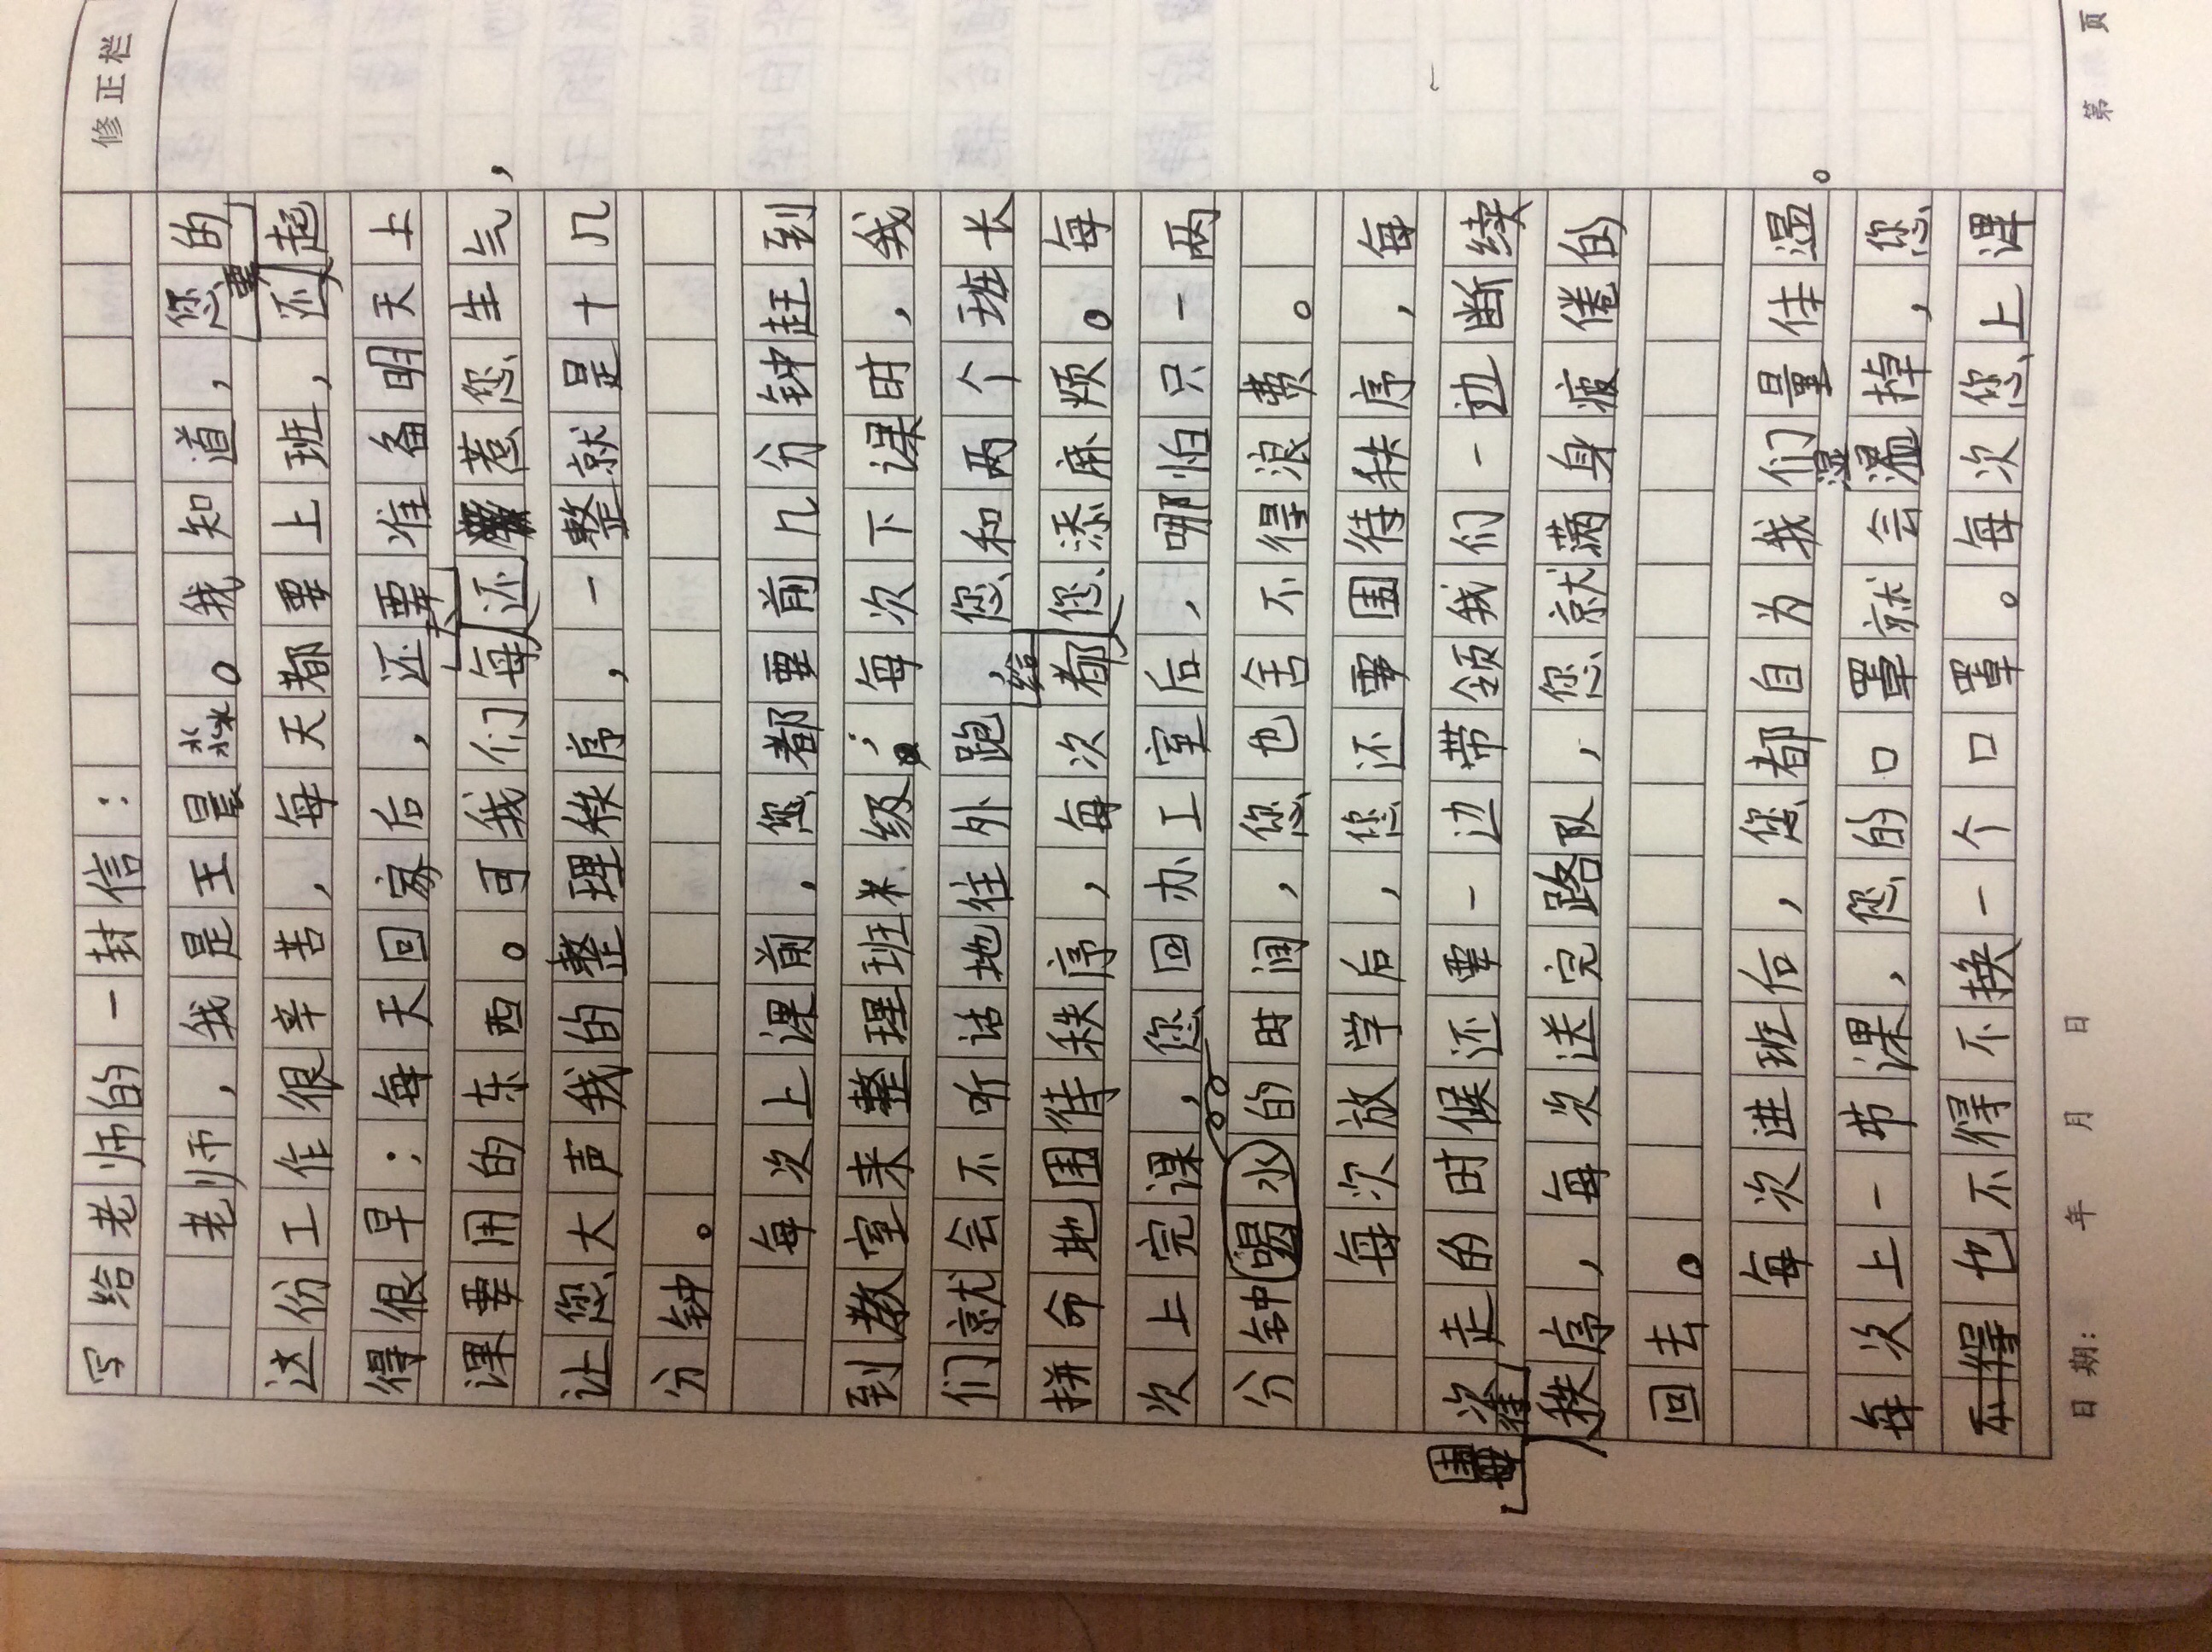 修正栏
写给老师的一封信：
老师，我是王晨淼。我知道，您的
这份工作很辛苦，每天都要上班，还要起
得很早；每天回家后，还要准备明天上
课要用的东西。可我们每天还惹您生气，
让您大声我的整理秩序，一整就是十几
分钟。
每次上课前，您都要前几分钟赶到
到教室来整理班级；每次下课时，我
们就会不听话地往外跑，您和两个班长
拼命地围待秩序，每次都给您添麻烦。每
次上完课，您回办工室后，哪怕只一两
分钟喝水的时间，您也舍不得浪费。
每次放学后，您还要围待秩序，每
次走的时候还要一边带领我们一边断续
维秩序，每次送完路队，您就满身疲倦的
回去。
每次进班后，您都自为我们量体温。
每次上一节课，您的口罩就会湿掉，您
也不得不换一个口罩。每次您上课
日期： 年 月 日
第 页